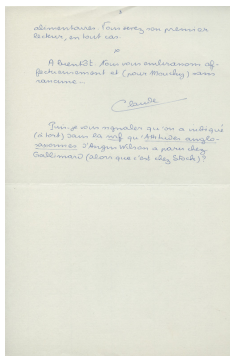 alimentaires. Vous serez son premier
lecteur, en tout cas.
*
A bientôt. Nous vous embrassons af-
fectueusement et (pour Mouchy) sans
rancune...
Claude
Puis-je vous signaler qu'on a indiqué
(à tort) dans la qu'Attitudes anglo-
saxonnes d'Angus Wilson a paru chez
Gallimard (alors que c'est chez Stock)?